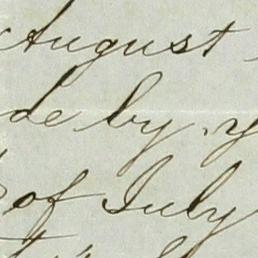 August
de by y
of July